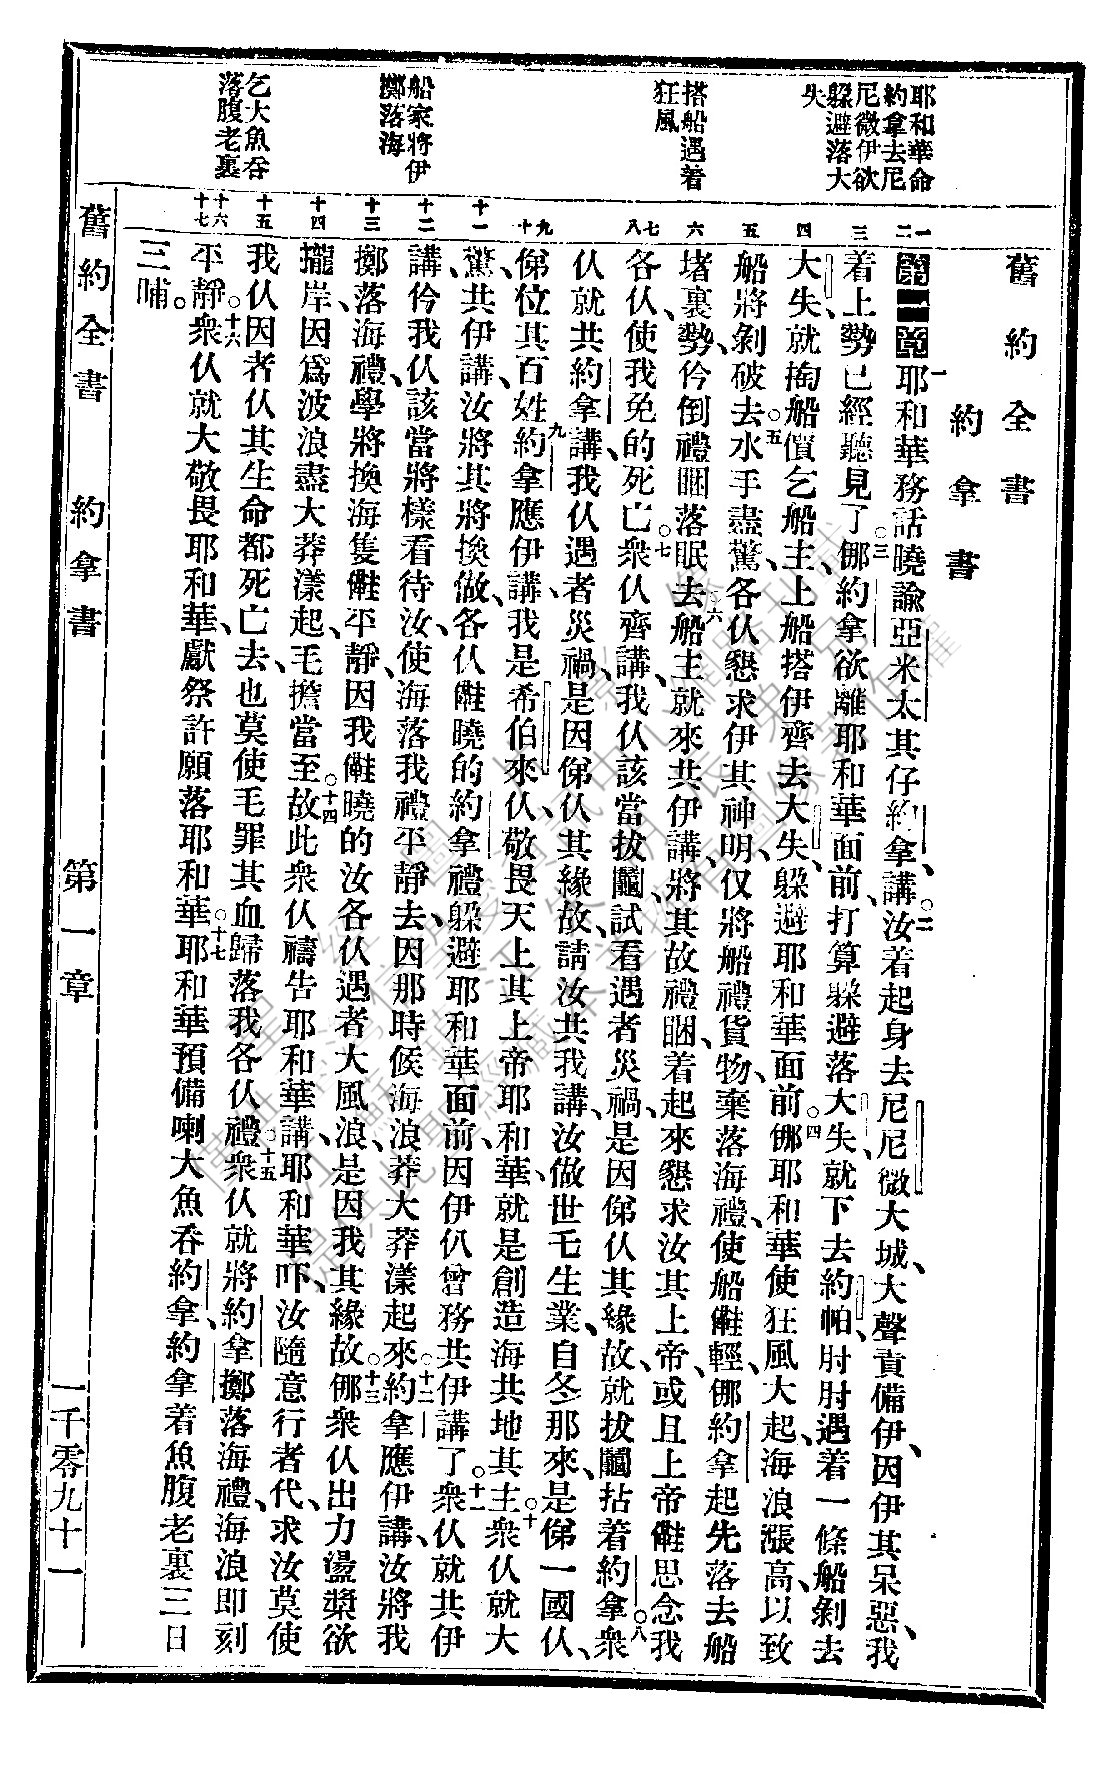 舊約全書
約拿書
耶和華命
約拿去尼
尼微伊欲
躱避落大
失
搭船遇着
狂風
船家將伊
擲落海
乞大魚吞
落腹老裏
一
二
三
四
五
六
七
八
九
十
十一
十二
十三
十四
十五
十六
十七
第一章一耶和華務話曉諭亞米太其仔約拿、講、○二汝着起身去尼尼微大城、大聲責備伊、因伊其呆惡、我
着上勢已經聽見了、○三㑚約拿欲離耶和華面前、打算躱避落大失、就下去約帕、肘肘遇着一條船剝去
大失、就掏船價乞船主、上船搭伊齊去大失、躱避耶和華面前。○四㑚耶和華使狂風大起、海浪漲高、以致
船將剝破去、○五水手盡驚、各仈懇求伊其神明、仅將船禮貨物、棄落海禮、使船㑲輕、㑚約拿起先落去船
堵裏勢、仱倒禮睏落眠去、○六船主就來共伊講、將其故禮睏、着起來懇求汝其上帝、或且上帝㑲思念我
各仈、使我免的死亡。○七衆仈齊講、我仈該當拔鬮、試看遇者災禍、是因俤仈其緣故、就拔鬮拈着約拿。○八衆
仈就共約拿講、我仈遇者災禍、是因俤仈其緣故、請汝共我講、汝做世乇生業、自冬那來、是俤一國仈、
俤位其百姓、○九約拿應伊講、我是希伯來仈、敬畏天上其上帝耶和華、就是創造海共地其主。○十衆仈就大
驚、共伊講、汝將其將換做、各仈㑲曉的約拿禮躱避耶和華面前、因伊仈曾務共伊講了。○十一衆仈就共伊
講、仱我仈該當將樣看待汝、使海落我禮平靜去、因那時候、海浪莽大莽漾起來、○十二約拿應伊講、汝將我
擲落海禮、學將換海隻㑲平靜、因我㑲曉的汝各仈遇者大風浪、是因我其緣故、○十三㑚衆仈出力盪槳欲
攏岸、因爲波浪盡大莽漾起、乇擔當至。○十四故此衆仈禱告耶和華講、耶和華吓、汝隨意行者代、求汝莫使
我仈因者仈其生命都死亡去、也莫使乇罪其血、歸落我各仈禮、○十五衆仈就將約拿擲落海禮、海浪即刻
平靜。○十六衆仈就大敬畏耶和華、獻祭許願落耶和華、○十七耶和華預備喇大魚吞約拿、約拿着魚腹老裏三日
三晡。
舊約全書　約拿書　第一章　一千零九十一